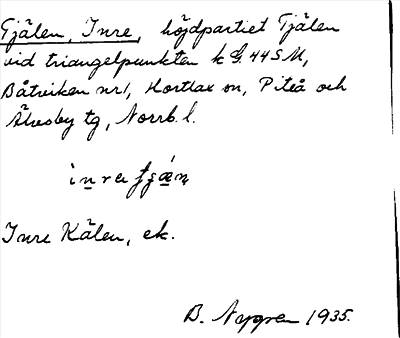 Tjälen, Inre, höjdpartiet Tjälen
vid triangelpunkten k G. 445 M,
Båtviken nr 1, Hortlax sn, Piteå och
Älvsby tg, Norrb. l.
Inre Kälen, ek.
B. Nygren 1935.